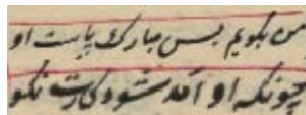 من بگویم بس مبارک پاست او
چونکه او آمد شود کارت نکو